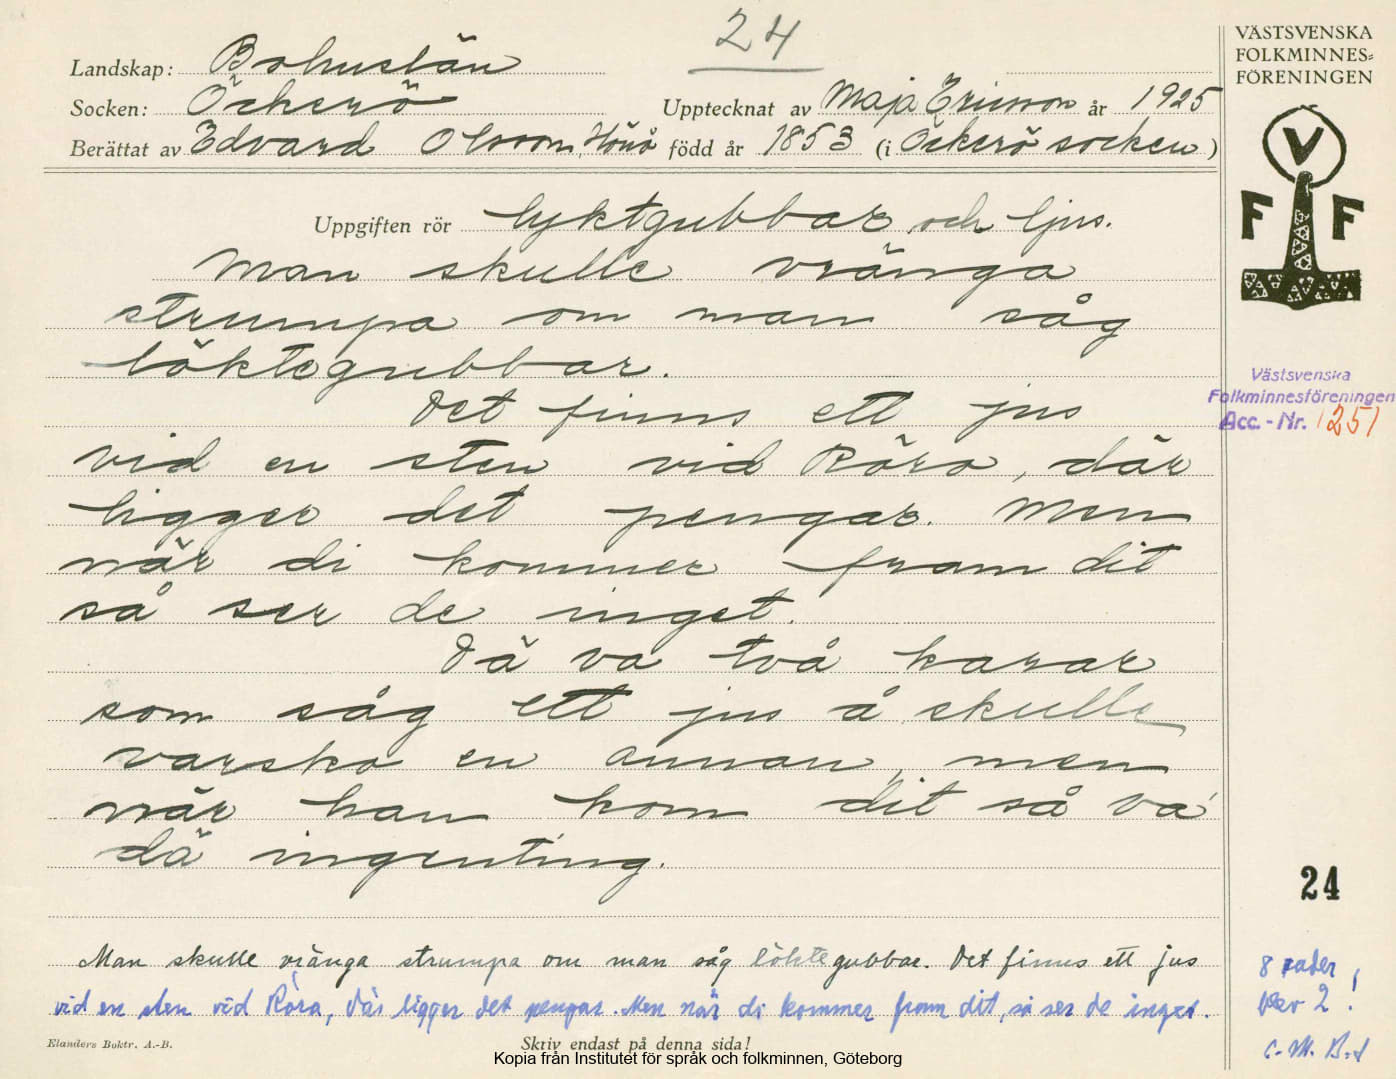 24
VÄSTSVENSKA
FOLKMINNES=
FÖRENINGEN
Landskap: Bohuslän
Socken: Öckerö
Upptecknat av Maja Ericson år 1925
Berättat av Edvard Olsson, Hönö född år 1853 (i Öckerö socken)
V
F F
Uppgiften rör lyktgubbar och ljus.
Man skulle vränga
strumpa om man såg
löktegubbar.
Det finns ett jus
vid en sten vid Röra, där
ligger det pengar. Men
när di kommer fram dit
så ser de inget.
Dä va två karar
som såg ett jus å skulle
varsko en annan, men
när han kom dit så va
dä ingenting.
Västsvenska
Folkminnesföreningen
Acc. - Nr. 1251
24
Man skulle vränga strumpa om man såg löktegubbar. Det finns ett jus
vid en sten vid Röra, där ligger det pengar. Men när di kommer fram dit, så ser de inget.
8 rader
2!
C.-M. B-d
Elanders Boktr. A.-B.
Skriv endast på denna sida!
Kopia från Institutet för språk och folkminnen, Göteborg